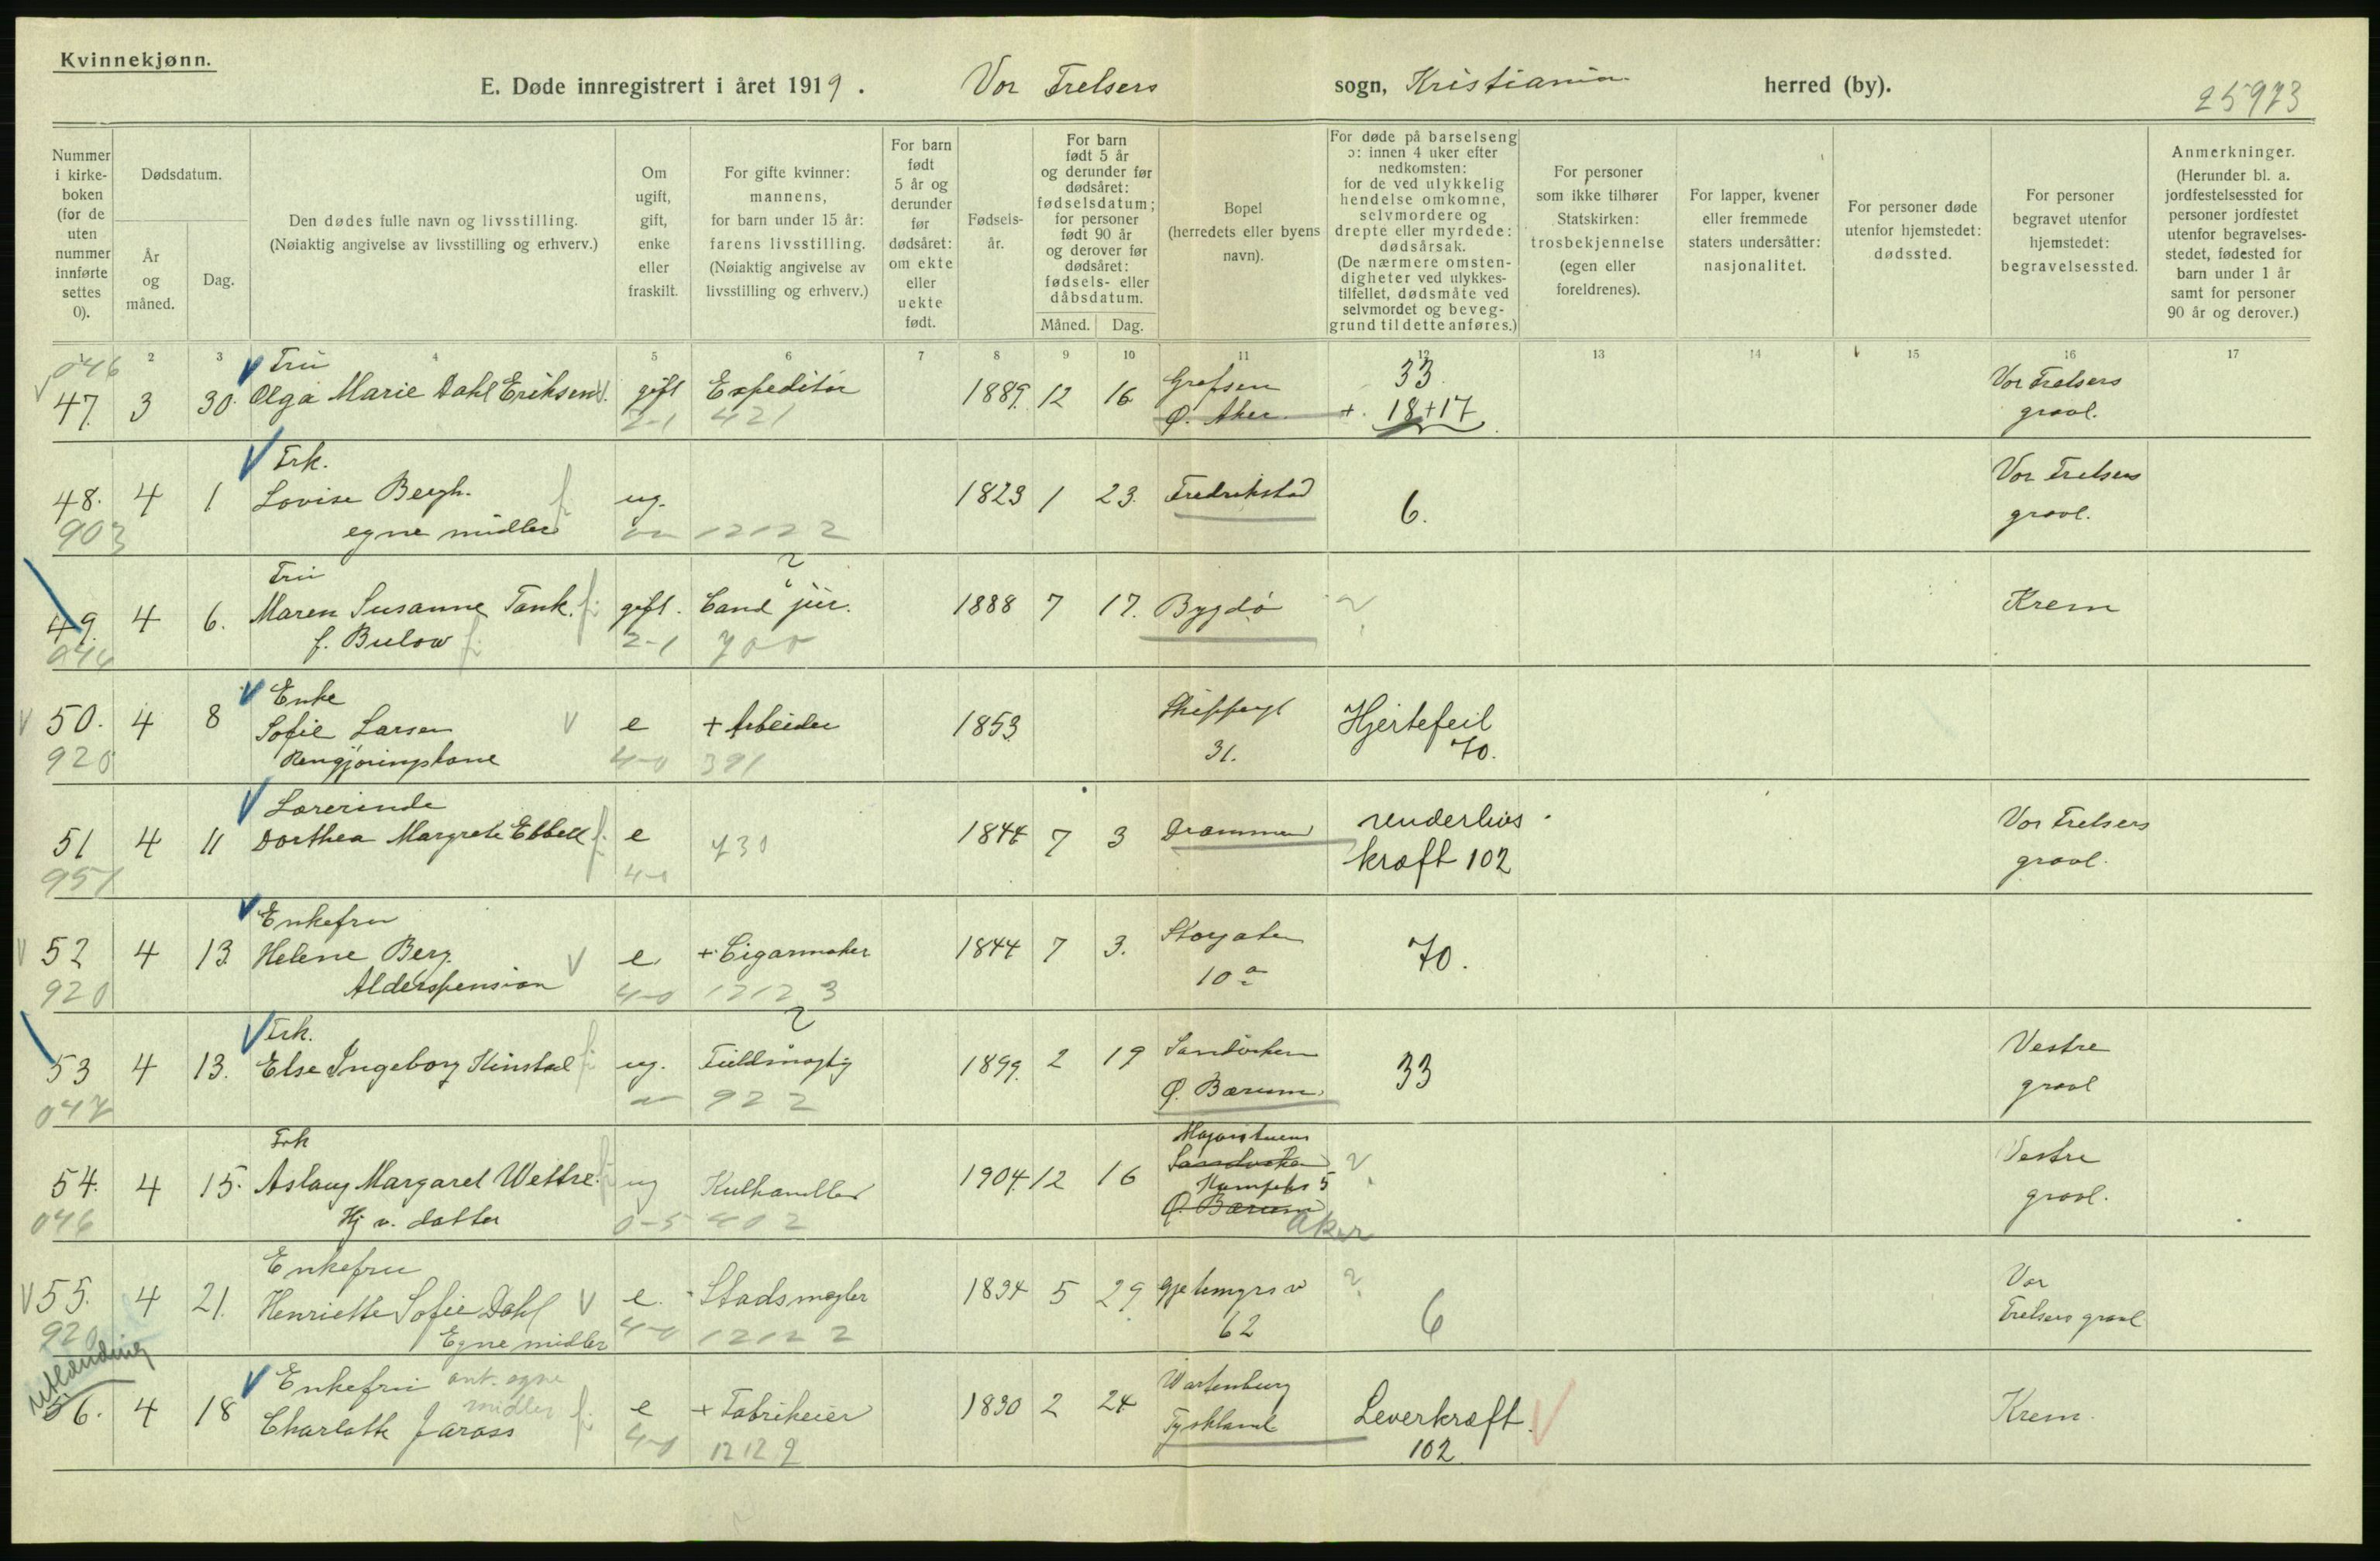 Kvinnekjønn.
E. Døde innregistrert i året 1919. Vor Frelsers sogn, Kristiania herred (by).
25973
Nummer i kirke-boken (for de uten nummer innførte settes 0).
Dødsdatum.
År og måned.
Dag.
Den dødes fulle navn og livsstilling.
(Nøiaktig angivelse av livsstilling og erhverv.)
Om ugift, gift, enke eller fraskilt.
For gifte kvinner: mannens, for barn under 15 år: farens livsstilling. (Nøiaktig angivelse av livsstilling og erhverv.)
For barn født 5 år og derunder før dødsåret: om ekte eller uekte født.
Fødsels-år.
For barn født 5 år og derunder før dødsåret: fødselsdatum; for personer født 90 år og derover før dødsåret: fødsels- eller dåbsdatum.
Måned.
Dag.
Bopel (herredets eller byens navn).
For døde på barselseng ɔ: innen 4 uker efter nedkomsten: for de ved ulykkelig hendelse omkomne, selvmordere og drepte eller myrdede: dødsårsak. (De nærmere omsten-digheter ved ulykkes-tilfellet, dødsmåte ved selvmordet og beveg-grund til dette anføres.)
For personer som ikke tilhører Statskirken: trosbekjennelse (egen eller foreldrenes).
For lapper, kvener eller fremmede staters undersåtter: nasjonalitet.
For personer døde utenfor hjemstedet: dødssted.
For personer begravet utenfor hjemstedet: begravelsessted.
Anmerkninger. (Herunder bl. a. jordfestelsessted for personer jordfestet utenfor begravelses-stedet, fødested for barn under 1 år samt for personer 90 år og derover.)
1 2 3 4 5 6 7 8 9 10 11 12 13 14 15 16 17
046
Fru
47. 3 30. Olga Marie Dahl Eriksen gift Expeditør 1889. 12 16 Grefsen 33. Vor Frelsers
2-1 421 Ø. Aker + 18+17 gravl.
Frk.
48. 4 1 Lovise Bergh. ug. 1823 1 23. Fredrikstad 6. Vor Frelsers
903 egne midler 12122 gravl.
Fru
49. 4 6. Maren Susanne Tank. gift. Cand jur. 1888 7 17. Bygdø ? Krem
044 f. Bulow 2-1 700
Enke
50. 4 8 Sofie Larsen e + Arbeider 1853 Skippergt Hjertefeil
920 Rengjøringskone 4-0 391 31. 70.
Lærerinde
51 4 11 Dorthea Margrete Ebbell e 730 1844 7 3 Drammen 
951 4-0 kræft 102 Vor Frelsers gravl.
Enkefru
52 4 13. Helene Berg. e. + Cigarmaker 1844 7 3. Storgaten 70.
920 Alderspension 4-0 12123 10 a
Frk.
53 4 13. Else Ingeborg ug. Fuldmægtig 1899. 2 19 Sandviken 33 Vestre
047 922 Ø. Bærum. gravl
Frk
54. 4 15. Aslaug Margaret Wettre. ug Kulhandler 1904. 12 16 Majorstuens ? Vestre
Sandviken
046 Hj v. datter 0-5 402 5 gravl.
Ø. Bærum Aker
Enkefru
55. 4 21. Henriette Sofie Dahl e. Stadsmægler 1834 5 29 Gjetemyrsv ? Vor
920 Egne midler 4-0 12122 62 6 Frelsers gravl
utlænding
Enkefru ant. egne midler
56. 4 18 Charlotte Jaross e + Fabrikeier 1830 2 24 Wartenburg Leverkræft. Krem.
4-0 12122 Tyskland 102